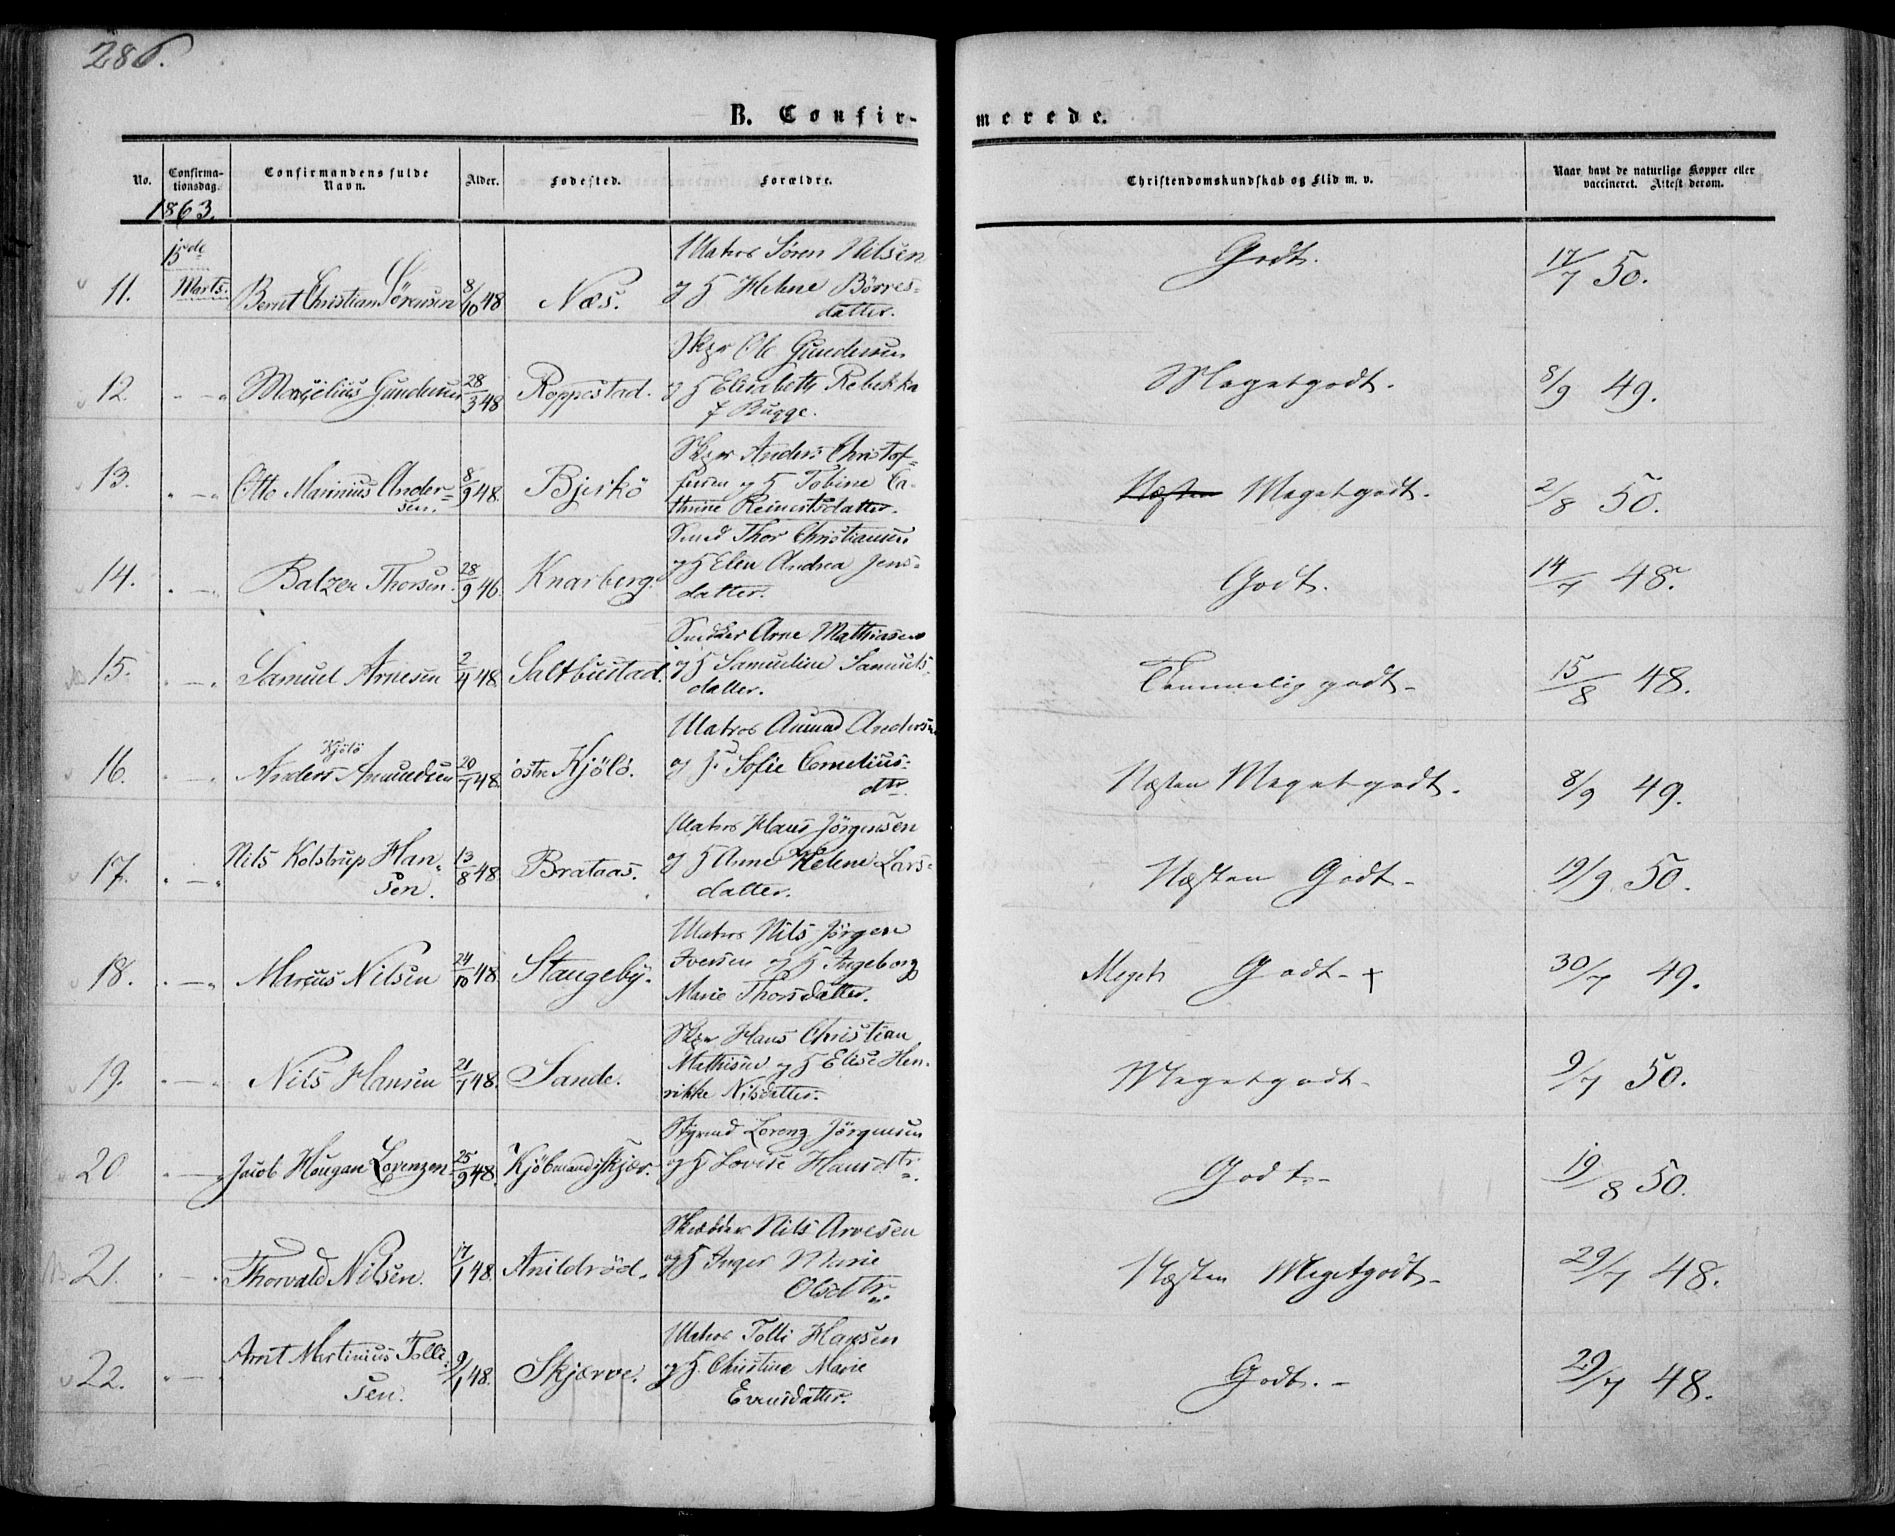 286.
B. Confir-
merede.
No.
Confirma-
tionsdag.
Confirmandens fulde
Navn.
Alder.
Fødested.
Forældre.
Christendomskundskab og Flid m. v.
Naar havt de naturlige Kopper eller
vaccineret. Attest derom.
1863.
15de
Marts.
11. Bernt Christian Sörensen 8/10 48 Næs.
Matros Sören Nilsen
og H Helene Börres-
datter.
Godt. 17/7 50.
12. - - " Marselius Gundersen 28/3 48 Roppestad.
Skpr Ole Gundersen
og H Elisabeth Rebekka
f Bugge.
Megetgodt. 8/9 49.
13. " - " Otto Marinius Ander-
sen. 8/9 48. Bjerkö
Skpr Anders Christof-
fersen og H Tobine Ca-
thrine Reinertsdatter.
Næsten Megetgodt. 2/8 50.
14. " - " Balzer Thorsen. 28/9 46. Knarberg.
Smed Thor Christiansen
og H Elen Andrea Jens-
datter.
Godt. 14/7 48.
15. " - " Samuel Arnesen 2/4 48 Saltbustad.
Snedker Arne Mathiasen
og H Samueline Samuels-
datter.
Temmelig godt - 15/8 48.
16. " - " Kjölö
Anders Amundsen 20/1 48. östre Kjölö.
Matros Amund Andersen
og H. Sofie Cornelius-
dtr.
Næsten Megetgodt. 8/9 49.
17. " - " Nils Kolstrup Han-
sen. 13/8 48. Brataas.
Matros Hans Jörgensen
og H Anne Helene Lars-
datter.
Næsten Godt - 19/9 50.
18. " - " Marcus Nilsen 24/10 48. Stangeby.
Matros Nils Jörgen
Iversen og H Ingeborg
Marie Thorsdatter.
Meget Godt - + 30/7 49.
19. " - " Nils Hansen 21/1 48. Sande.
Skpr Hans Christian
Mathisen og H Elise Hen-
rikke Nilsdatter.
Megetgodt - 9/7 50.
20 " - " Jacob Hougan Lorenzen 25/9 48. Kjöbmandskjær.
Styrmd Lorenz Jörgensen
og H Lovise Hansdtr.
Godt. - 19/8 50.
21. " - " Thorvald Nilsen. 17/1 48. Anildröd.
Skrædder Nils Arvesen
og H Inger Marie
Olsdtr.
Næsten Megetgodt - 29/7 48.
22. " - " Arnt Martinius Tolle-
sen. 9/1 48. Skjærve.
Matros Tolli Hansen
og H. Christine Marie
Evensdatter.
Godt. - 29/7 48.